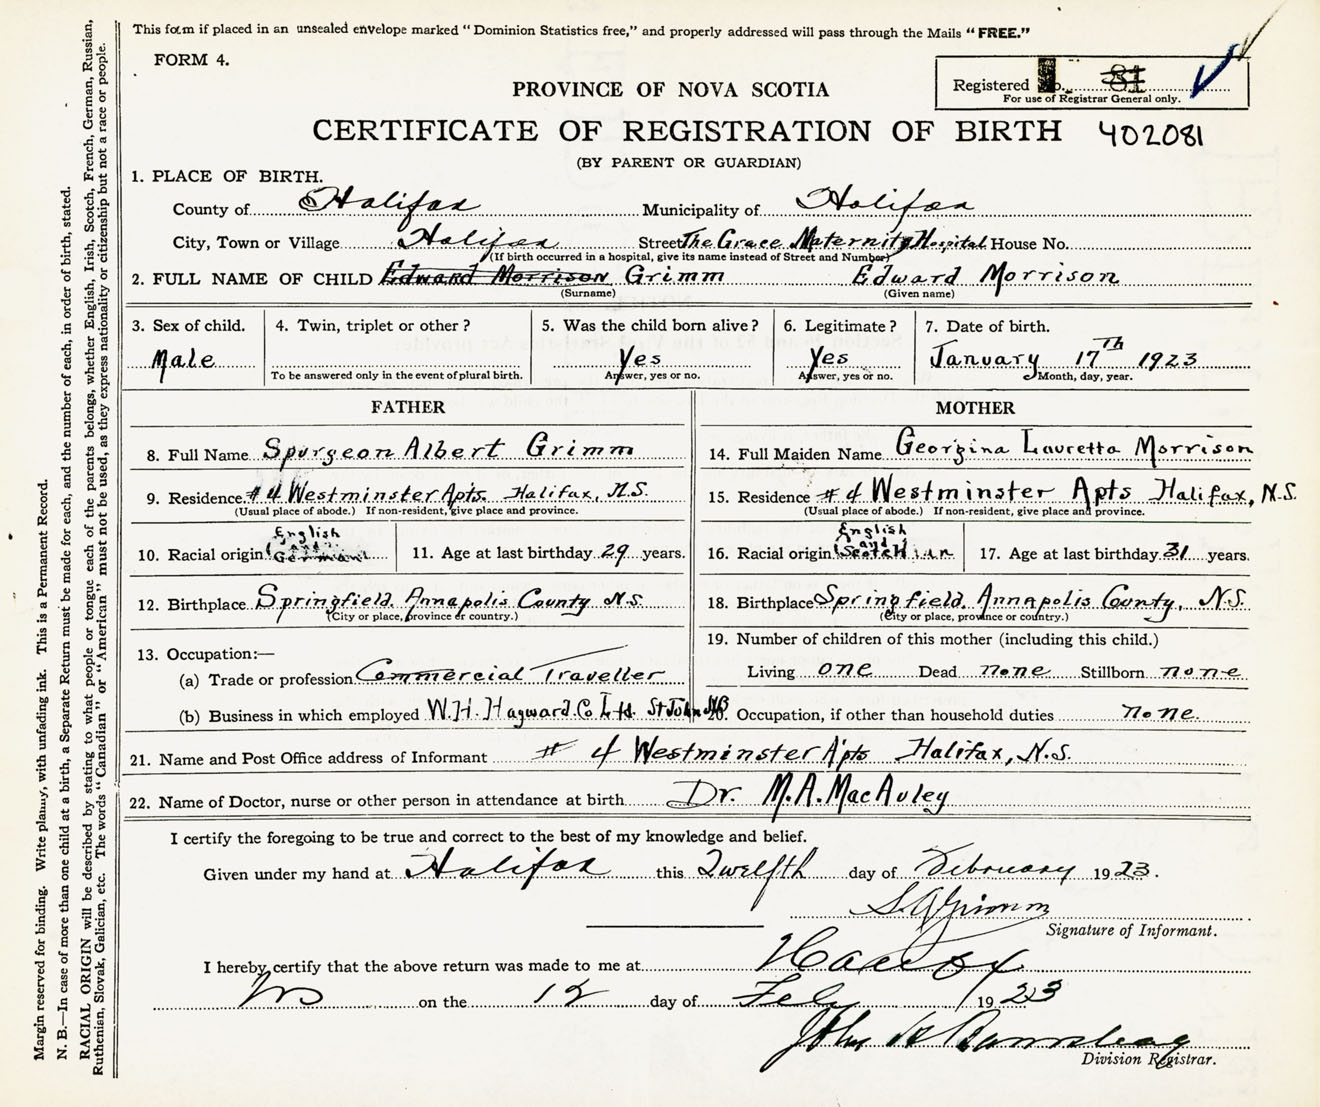 This form if placed in an unsealed envelope marked “Dominion Statistics free,” and properly addressed will pass through the Mails “FREE.”
FORM 4.
Registered No. 81
For use of Registrar General only.
PROVINCE OF NOVA SCOTIA
CERTIFICATE OF REGISTRATION OF BIRTH 402081
(BY PARENT OR GUARDIAN)
1. PLACE OF BIRTH.
County of Halifax Municipality of Halifax
City, Town or Village Halifax Street The Grace Maternity Hospital House No.
(If birth occurred in a hospital, give its name instead of Street and Number)
2. FULL NAME OF CHILD Edward Morrison Grimm Edward Morrison
(Surname) (Given name)
3. Sex of child. 4. Twin, triplet or other? 5. Was the child born alive? 6. Legitimate? 7. Date of birth.
Male Yes Yes January 17th 1923
To be answered only in the event of plural birth. Answer, yes or no. Answer, yes or no. Month, day, year.
FATHER
8. Full Name Spurgeon Albert Grimm
9. Residence #4 Westminster Apts. Halifax, N.S.
(Usual place of abode.) If non-resident, give place and province.
English
and
10. Racial origin German 11. Age at last birthday 29 years.
12. Birthplace Springfield. Annapolis County N.S.
(City or place, province or country.)
13. Occupation:—
(a) Trade or profession Commercial Traveller
(b) Business in which employed W.H. Hayward Co Ltd. St John NB
MOTHER
14. Full Maiden Name Georgina Lauretta Morrison
15. Residence #4 Westminster Apts Halifax, N.S.
(Usual place of abode.) If non-resident, give place and province.
English
and
16. Racial origin Scotch 17. Age at last birthday 31 years.
18. Birthplace Springfield. Annapolis County, N.S.
(City or place, province or country.)
19. Number of children of this mother (including this child.)
Living one Dead none Stillborn none
20. Occupation, if other than household duties none.
21. Name and Post Office address of Informant #4 Westminster Apts Halifax, N.S.
22. Name of Doctor, nurse or other person in attendance at birth Dr. M.A. MacAuley
I certify the foregoing to be true and correct to the best of my knowledge and belief.
Given under my hand at Halifax this Twelfth day of February 1923.
S.A. Grimm
Signature of Informant.
I hereby certify that the above return was made to me at Halifax
NS on the 12 day of Feby 1923
John A
Division Registrar.
Margin reserved for binding. Write plainly, with unfading ink. This is a Permanent Record.
N. B.—In case of more than one child at a birth, a Separate Return must be made for each, and the number of each, in order of birth, stated.
RACIAL ORIGIN will be described by stating to what people or tongue each of the parents belongs, whether English, Irish, Scotch, French, German, Russian,
Ruthenian, Slovak, Galician, etc. The words “Canadian” or “American” must not be used, as they express nationality or citizenship but not a race or people.